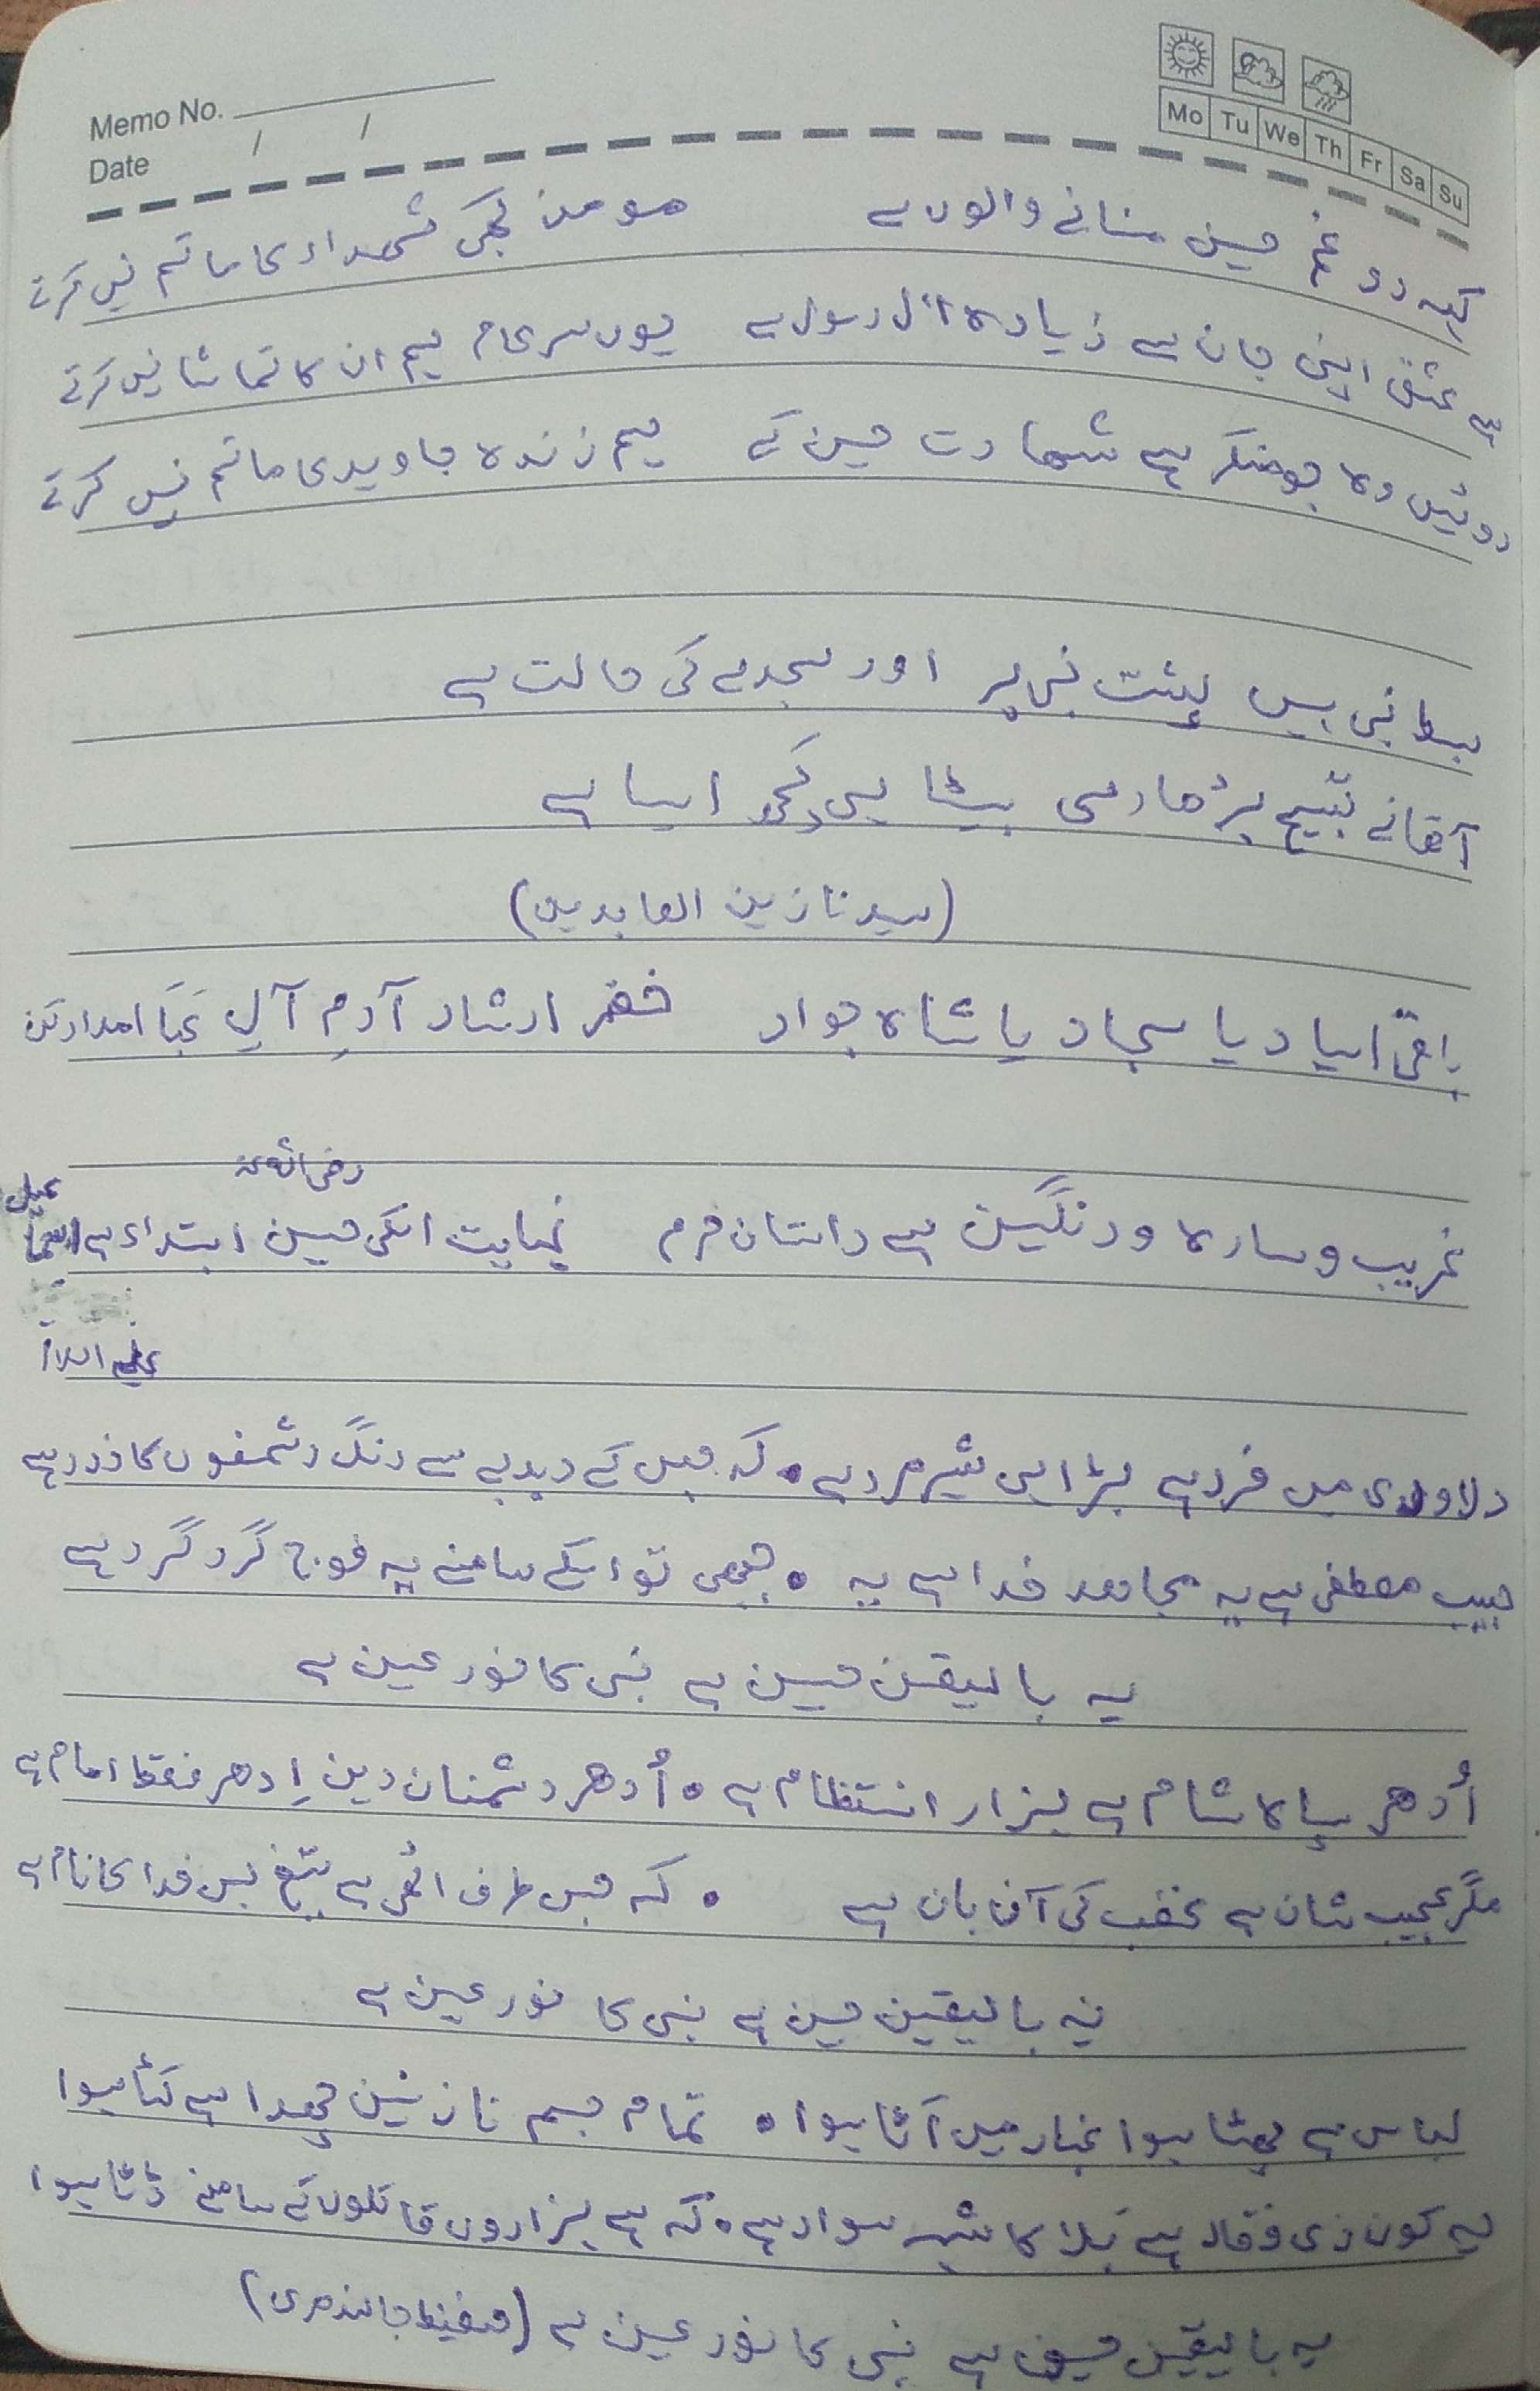 Memo No.
Date / /
Mo Tu We Th Fr Sa Su
کہہ دو غم حسین منانے والوں سے مومن کبھی شھداء کا ماتم نہیں کرتے
ہے عشق اپنی جان سے زیادہ آل رسول سے یوں سرعام ہم ان کا تماشا نہیں کرتے
روئیں وہ جو منکر ہے شھادت حسین کے ہم زندہ جاوید کا ماتم نہیں کرتے
سبط نبی ہیں پشت نبی پر اور سجدے کی حالت ہے
آقا نے تسبیح بڑھا دی بیٹا ہی کچھ ایسا ہے
(سیدنا زین العابدین)
یا سجاد یا شاہ جواد خضر ارشاد آدم آل عبا امداد کن
رضی اللہ عنہ
غریب و سادہ و رنگین ہے داستان حرم نہایت اسکی حسین ابتداء ہے
علیہ السلام
دلاوری میں فرد ہے بڑا ہی شیر مرد ہے • کہ جس کے دبدبے سے رنگ دشمنوں کا زرد ہے
حبیب مصطفی ہے یہ مجاھد خدا ہے یہ • جبھی تو اسکے سامنے یہ فوج گرد گرد ہے
یہ بالیقین حسین ہے نبی کا نور عین ہے
اُدھر سپاہ شام ہے ہزار انتظام ہے • اُدھر دشمنان دین اِدھر فقط امام ہے
مگر عجیب شان ہے غضب کی آن بان ہے • کہ جس طرف اٹھی ہے تیغ بس خدا کا نام ہے
یہ بالیقین حسین ہے نبی کا نور عین ہے
لباس ہے پھٹا ہوا غبار میں اٹا ہوا • تمام جسم نازنین چھدا ہے کٹا ہوا
یہ کون ذی وقار ہے بلا کا شہہ سوار ہے • کہ ہے ہزاروں قاتلوں کے سامنے ڈٹا ہوا
یہ بالیقین حسین ہے نبی کا نور عین ہے (حفیظ جالندھری)